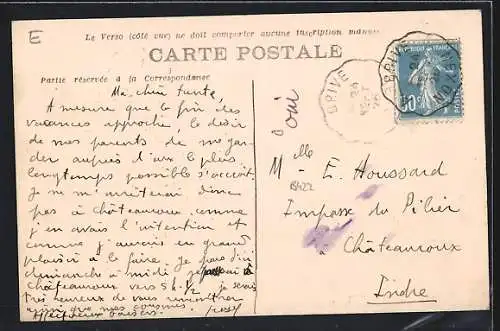 E
Le Verso (côté vue) ne doit comporter aucune inscription manus
CARTE POSTALE
Partie réservée à la Correspondance
Ma chère tante
A mesure que la fin des
vacances approche, le désir
de nos parents de me gar-
der auprès d'eux le plus
longtemps possible s'accroît
Je ne m'arrêterai donc
pas à Châteauroux comme
j'en avais l'intention et
comme j'aurais eu grand
plaisir à le faire. Je
dimanche à midi, je à
Châteauroux vers 5h 1/2 je serais
très heureux de vous rencontrer
ainsi que mes cousines.
Affectueux baisers
oui
BRIVE
BRIVE
50c
Mlle E. Houssard
18422
Impasse du Pilier
Châteauroux
Indre